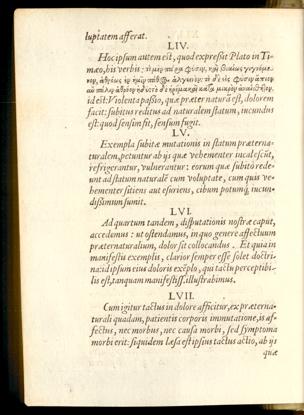 luptatem afferat.
LIV.
Hoc ipsum autem est, quod expreßit Plato in Ti-
mæo, his verbis: τὸ μὲν παρὰ φύσιν, καὶ βίαιον γιγνόμε-
νον, ἀθρόως ἐν ἡμῖν πάθος, ἀλγεινόν: τὸ δ' εἰς φύσιν ἀπιὸν
αὖ πάλιν ἀθρόον ἡδύ: τὸ δὲ ἠρέμα καὶ κατὰ μικρὸν ἀναίσθητον.
id est: Violenta paßio, quæ præter naturã est, dolorem
facit: subitus reditus ad naturalem statum, iucundus
est: quod sensim fit, sensum fugit.
LV.
Exempla subitæ mutationis in statum præterna-
turalem, petuntur ab ijs quæ vehementer incalescũt,
refrigerantur, vulnerantur: eorum quæ subitò rede-
unt ad statum naturalẽ cum voluptate, cum quis ve-
hementer sitiens aut esuriens, cibum potumq́; iucun-
dißimum sumit.
LVI.
Ad quartum tandem, disputationis nostræ caput,
accedemus: ut ostendamus, in quo genere affectuum
præternaturalium, dolor sit collocandus. Et quia in
manifestis exemplis, clarior semper esse solet doctri-
na: id ipsum eius doloris exẽplo, qui tactu perceptibi-
lis est, tanquam manifestiß. illustrabimus.
LVII.
Cum igitur tactus in dolore afficitur, ex præterna-
turali quadam, patientis corporis immutatione, is af-
fectus, nec morbus, nec causa morbi, sed symptoma
morbi erit: siquidem læsa est ipsius tactus actio, ab ijs
quæ